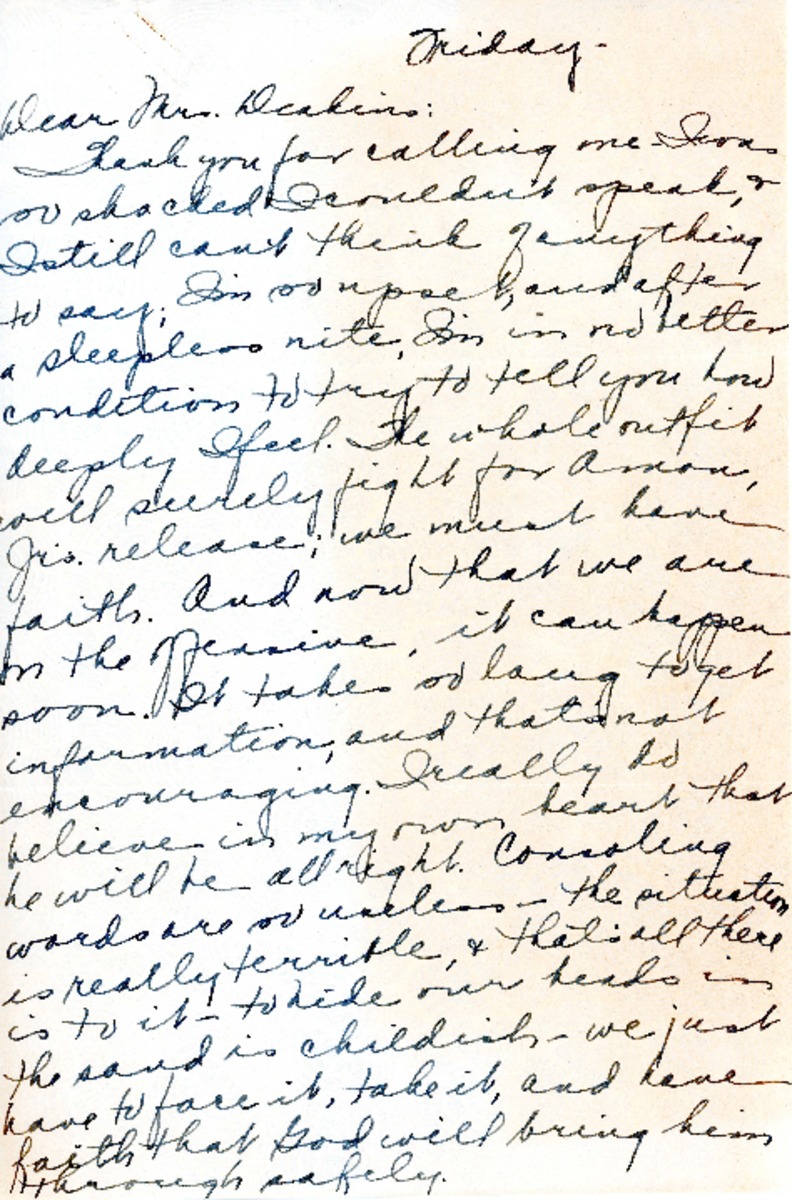 Friday -
Dear Mrs. Deakins:
Thank you for calling me - I was
so shocked I couldn't speak, &
I still can't think of anything
to say; I'm so upset, and after
a sleepless nite, I'm in no better
condition to try to tell you how
deeply I feel. The whole outfit
will surely fight for Amon,
Jrs. release; we must have
faith. And now that we are
on the offensive, it can happen
soon. It takes so long to get
information, and that's not
encouraging. I really do
believe in my own heart that
he will be all right. Consoling
words are so useless - the situation
is really terrible, & that's all there
is to it - to hide our heads in
the sand is childish - we just
have to face it, take it, and have
faith that God will bring him
through safely.